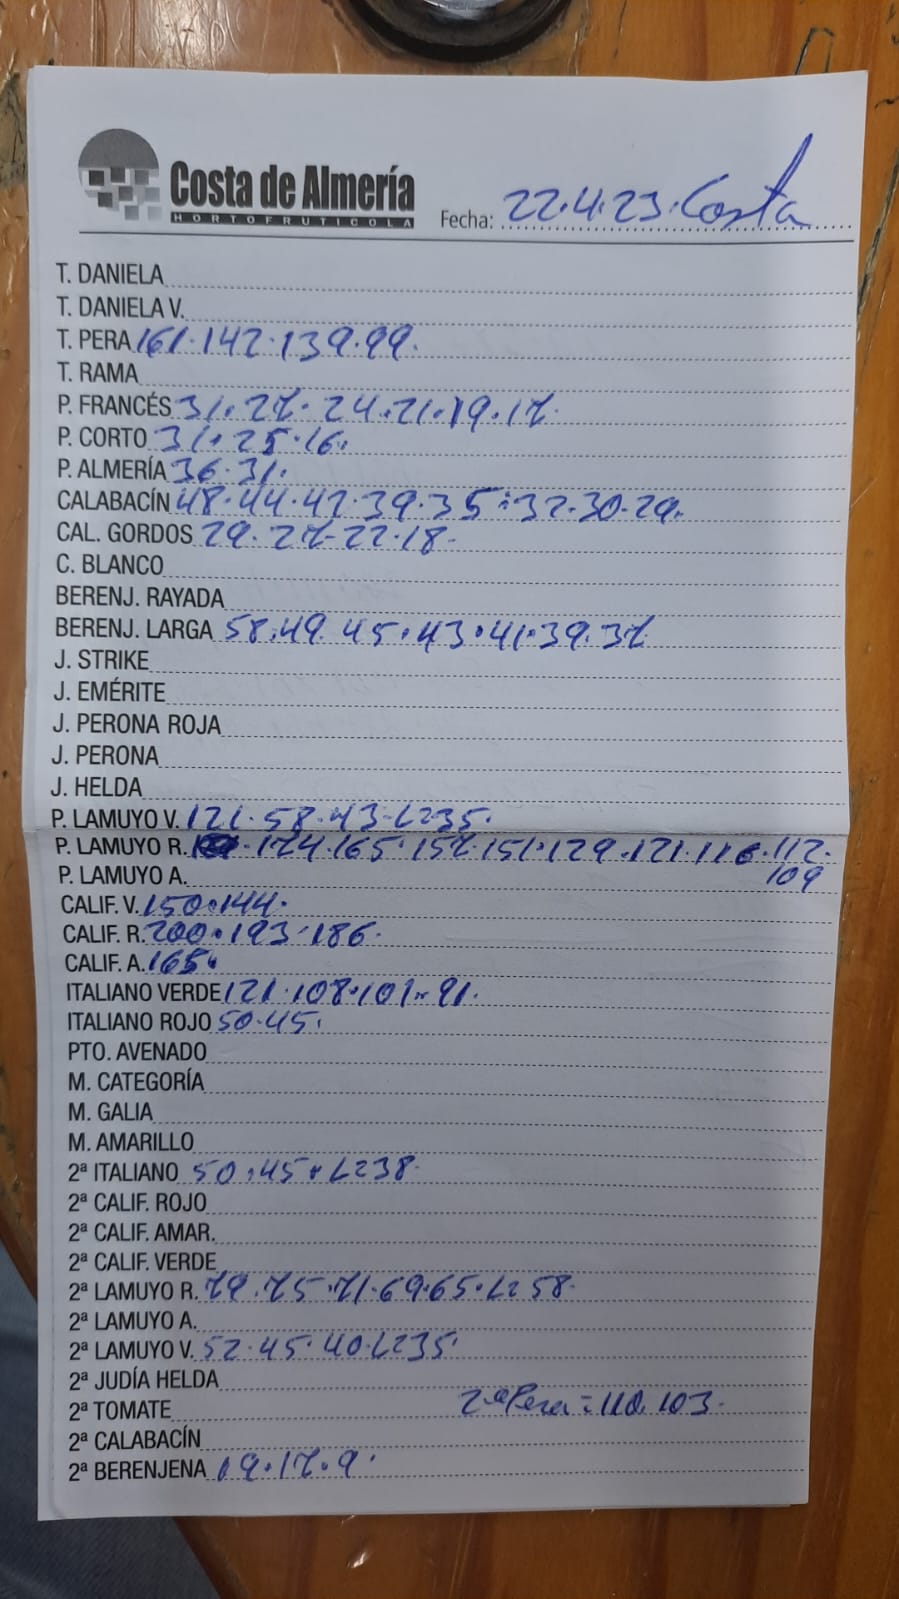 Costa de Almería
HORTOFRUTICOLA
Fecha: 22.4.23. Costa
T. DANIELA
T. DANIELA V.
T. PERA 161.142.139.99.
T. RAMA
P. FRANCÉS 31.27.24.21.19.17.
P. CORTO 31.25.16.
P. ALMERÍA 36.31.
CALABACÍN 48.44.42.39.35.32.30.29.
CAL. GORDOS 29.27.22.18.
C. BLANCO
BERENJ. RAYADA
BERENJ. LARGA 58.49.45.43.41.39.37.
J. STRIKE
J. EMÉRITE
J. PERONA ROJA
J. PERONA
J. HELDA
P. LAMUYO V. 121.58.43.L235.
P. LAMUYO R. 174.165.157.151.129.121.116.112.
109
P. LAMUYO A.
CALIF. V. 150.144.
CALIF. R. 200.193.186.
CALIF. A. 165.
ITALIANO VERDE 121.108.101.91.
ITALIANO ROJO 50.45.
PTO. AVENADO
M. CATEGORÍA
M. GALIA
M. AMARILLO
2ª ITALIANO 50.45.L238.
2ª CALIF. ROJO
2ª CALIF. AMAR.
2ª CALIF. VERDE
2ª LAMUYO R. 79.75.71.69.65.L258.
2ª LAMUYO A.
2ª LAMUYO V. 52.45.40.L235.
2ª JUDÍA HELDA
2ª TOMATE 2ª Pera = 110.103.
2ª CALABACÍN
2ª BERENJENA 19.17.9.